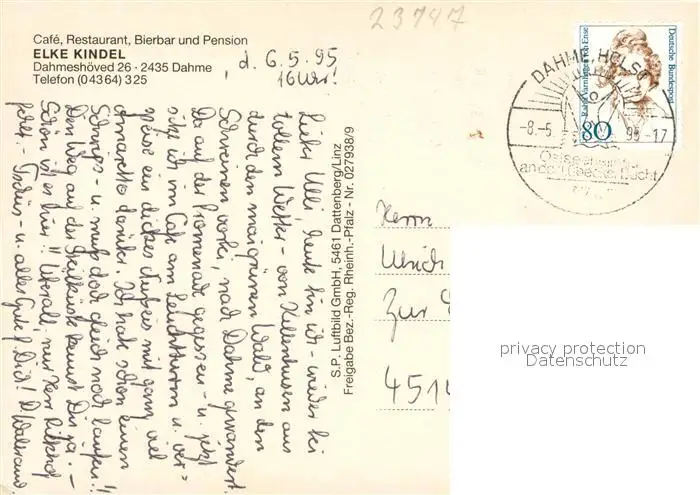 23747
Café, Restaurant, Bierbar und Pension
ELKE KINDEL
Dahmeshöved 26 · 2435 Dahme
Telefon (04364) 325
d. 6.5.95
16 Uhr!
Lieber Ulli, heute bin ich wieder bei
tollem Wetter - von Kellenhusen aus
durch den maigrünen Wald, an den
Schweinen vorbei, nach Dahme gewandert.
Da auf der Promenade gegessen - u. jetzt
sitz ich im Café am Leuchtturm u. ver=
speise ein dickes Nußeis mit ganz viel
Amaretto darüber. Ich hab schon einen
Schwips - u. muß doch gleich noch laufen!!
Den Weg auf der Steilküste kennst Du ja. -
Schön ist es hier!! Überall, nur Herr
fehlt. - Tschüs - u. alles Gute f. Dich!
S.P. Luftbild GmbH, 5461 Dattenberg/Linz
Freigabe Bez.-Reg. Rheinh.-Pfalz - Nr. 02793 8/9
Deutsche Bundespost
Rahel Varnhagen von Ense
80
DAHME, HOLST
-8.-5 95-17
an der Lübecker Bucht
Herrn
Ulrich
Zur
4514
privacy protection
Datenschutz